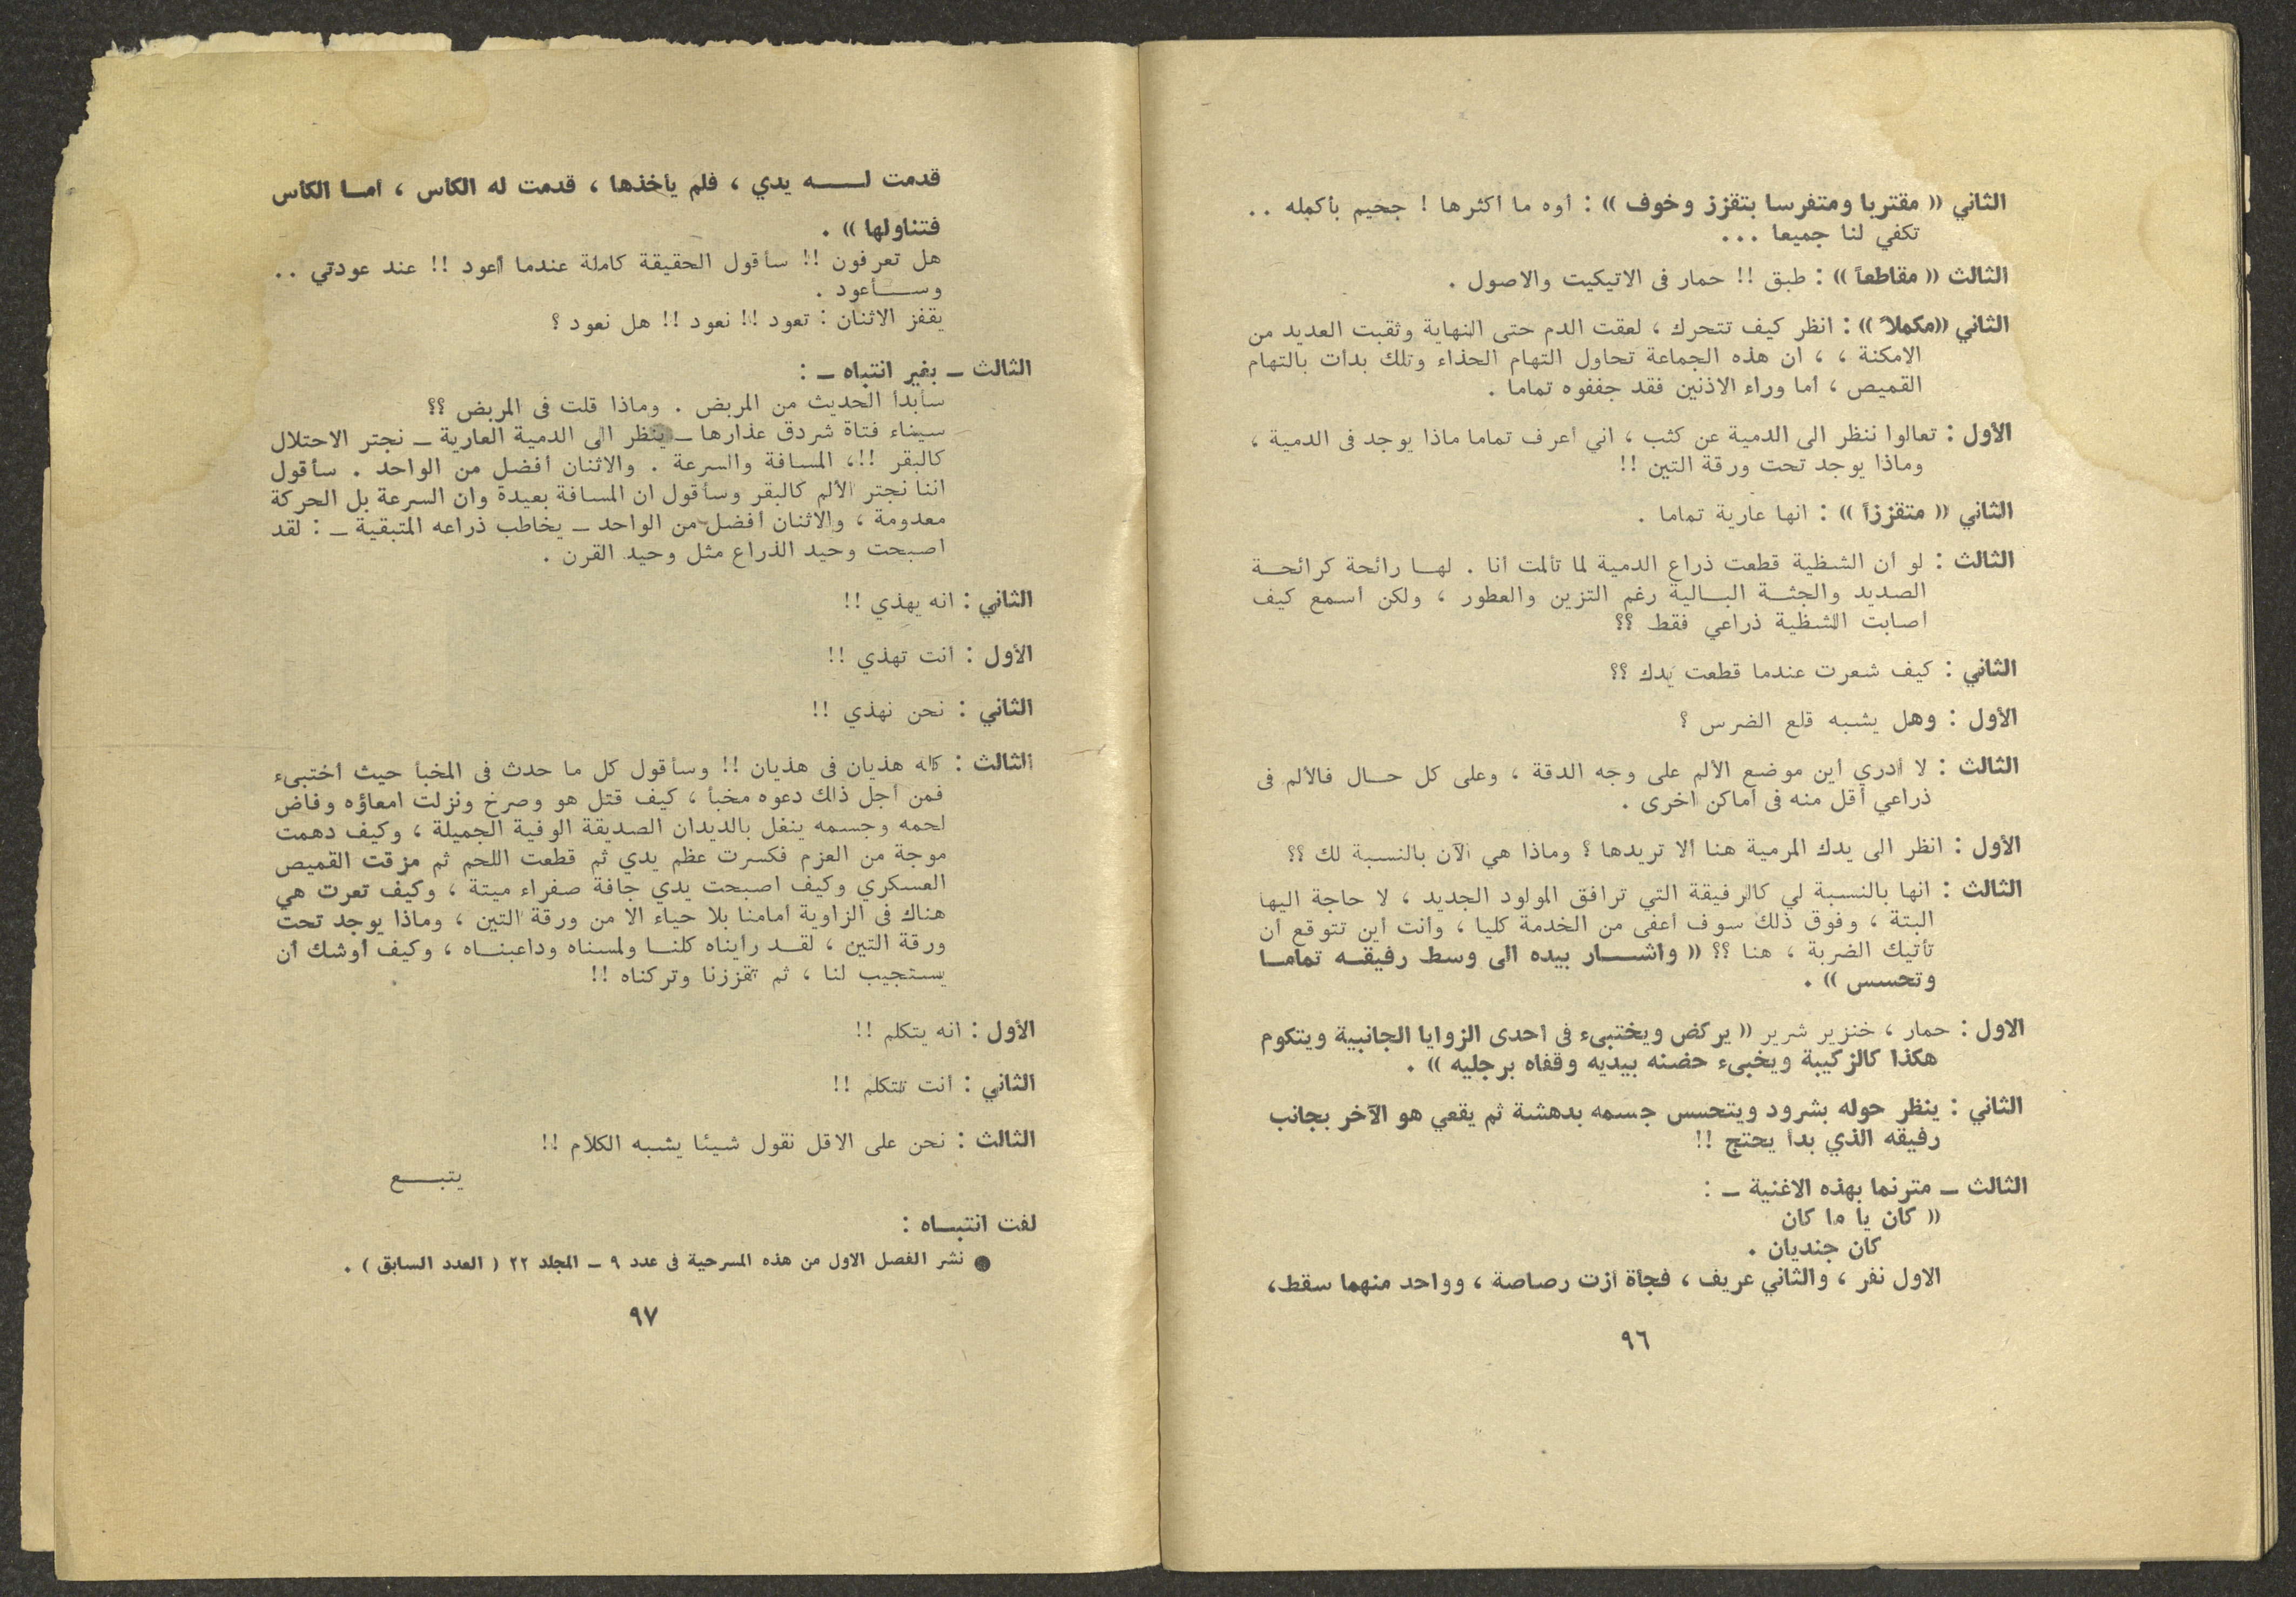 الثاني (( مقتربا ومتفرسا بتقزز وخوف )) : أوه ما أكثرها ! جحيم بأكمله . .
تكفي لنا جميعا . . .
الثالث (( مقاطعاً )) : طبق !! حمار فى الاتيكيت والاصول .
الثاني ((مكملاً )) : انظر كيف تتحرك ، لعقت الدم حتى النهاية وثقبت العديد من
الامكنة ، ، ان هذه الجماعة تحاول التهام الحذاء وتلك بدأت بالتهام
القميص ، أما وراء الاذنين فقد جففوه تماما .
الأول : تعالوا ننظر الى الدمية عن كثب ، اني أعرف تماما ماذا يوجد فى الدمية ،
وماذا يوجد تحت ورقة التين !!
الثاني (( متقززاً )) : انها عارية تماما .
الثالث : لو أن الشظية قطعت ذراع الدمية لما تألمت أنا . لهـا رائحة كرائحـة
الصديد والجثـة البـالية رغم التزين والعطور ، ولكن أسمع كيف
اصابت الشظية ذراعي فقط ؟؟
الثاني : كيف شعرت عندما قطعت يدك ؟؟
الأول : وهل يشبه قلع الضرس ؟
الثالث : لا أدري أين موضع الألم على وجه الدقة ، وعلى كل حـال فالألم فى
ذراعي أقل منه فى أماكن اخرى .
الأول : انظر الى يدك المرمية هنا ألا تريدها ؟ وماذا هي الآن بالنسبة لك ؟؟
الثالث : انها بالنسبة لي كالرفيقة التي ترافق المولود الجديد ، لا حاجة اليها
البتة ، وفوق ذلك سوف أعفى من الخدمة كليا ، وأنت أين تتوقع أن
تأتيك الضربة ، هنا ؟؟ (( وأشـــار بيده الى وسط رفيقـه تمامـا
وتحسس )) .
الاول : حمار ، خنزير شرير (( يركض ويختبىء فى احدى الزوايا الجانبية ويتكوم
هكذا كالزكيبة ويخبىء حضنه بيديه وقفاه برجليه )) .
الثاني : ينظر حوله بشرود ويتحسس جسمه بدهشة ثم يقعي هو الآخر بجانب
رفيقه الذي بدأ يحتج !!
الثالث – مترنما بهذه الاغنية – :
(( كان يا ما كان
كان جنديان .
الاول نفر ، والثاني عريف ، فجأة أزت رصاصة ، وواحد منهما سقط،
٩٦
قدمت لـــه يدي ، فلم يأخذها ، قدمت له الكأس ، أمـا الكأس
فتناولها )) .
هل تعرفون !! سأقول الحقيقة كاملة عندما أعود !! عند عودتي . .
وســـأعود .
يقفز الاثنان : تعود !! نعود !! هل نعود ؟
الثالث – بغير انتباه – :
سأبدأ الحديث من المربض . وماذا قلت فى المربض ؟؟
سيناء فتاة شردق عذارها – ينظر الى الدمية العارية – نجتر الاحتلال
كالبقر !!، المسافة والسرعة . والاثنان أفضل من الواحد . سأقول
اننا نجتر الألم كالبقر وسأقول ان المسافة بعيدة وان السرعة بل الحركة
معدومة ، والاثنان أفضل من الواحد – يخاطب ذراعه المتبقية – : لقد
اصبحت وحيد الذراع مثل وحيد القرن .
الثاني : انه يهذي !!
الأول : أنت تهذي !!
الثاني : نحن نهذي !!
الثالث : كله هذيان فى هذيان !! وسأقول كل ما حدث فى المخبأ حيث أختبىء
فمن أجل ذلك دعوه مخبأ ، كيف قتل هو وصرخ ونزلت امعاؤه وفاض
لحمه وجسمه ينغل بالديدان الصديقة الوفية الجميلة ، وكيف دهمت
موجة من العزم فكسرت عظم يدي ثم قطعت اللحم ثم مزقت القميص
العسكري وكيف اصبحت يدي جافة صفراء ميتة ، وكيف تعرت هي
هناك فى الزاوية أمامنا بلا حياء الا من ورقة التين ، وماذا يوجد تحت
ورقة التين ، لقـد رأيناه كلنـا ولمسناه وداعبنـاه ، وكيف أوشك أن
يستجيب لنا ، ثم تقززنا وتركناه !!
الأول : انه يتكلم !!
الثاني : أنت تتكلم !!
الثالث : نحن على الاقل نقول شيئا يشبه الكلام !!
يتبـــع
لفت انتبـاه :
● نشر الفصل الاول من هذه المسرحية فى عدد ٩ – المجلد ٢٢ ( العدد السابق ) .
٩٧